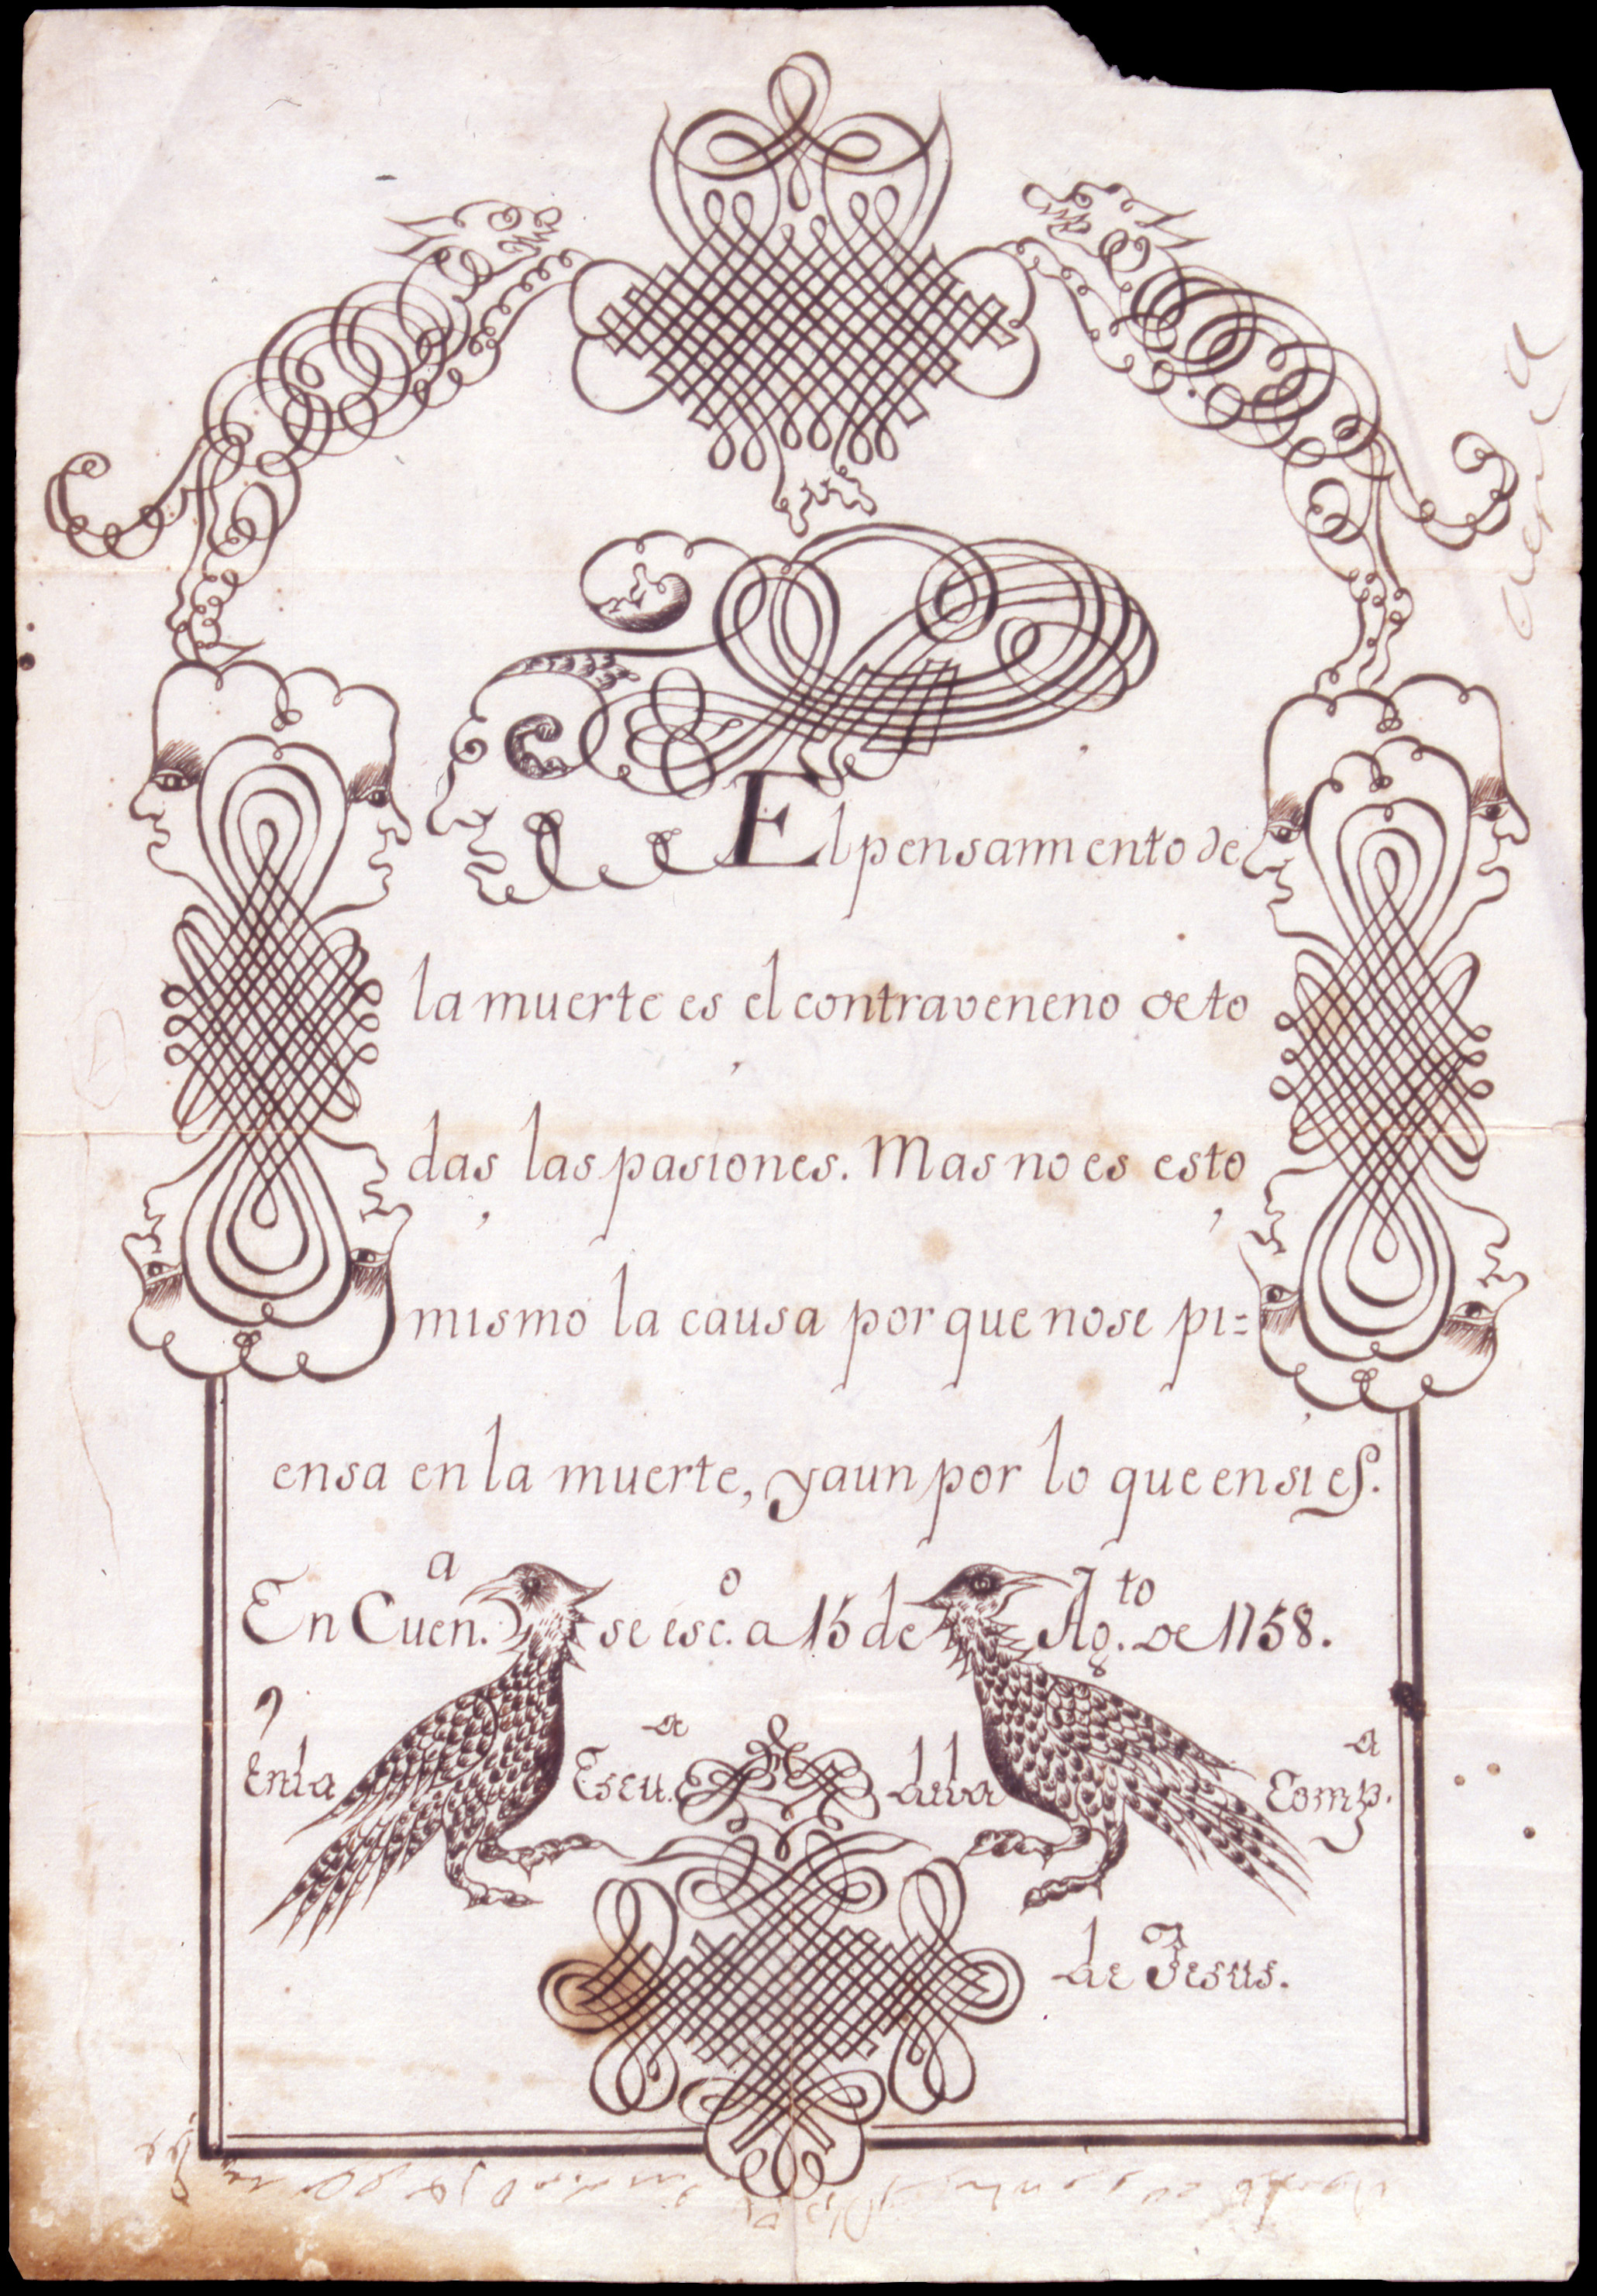 El pensamiento de
la muerte es el contraveneno de to
das las pasiones. Mas no es esto
mismo la causa por que no se pi=
ensa en la muerte, y aun por lo que en si es.
En Cuen.ᵃ se esc.ᵒ a 15 de Ag.ᵗᵒ de 1758.
En la Escu.ᵃ de la Comp.ᵃ
de Jesus.